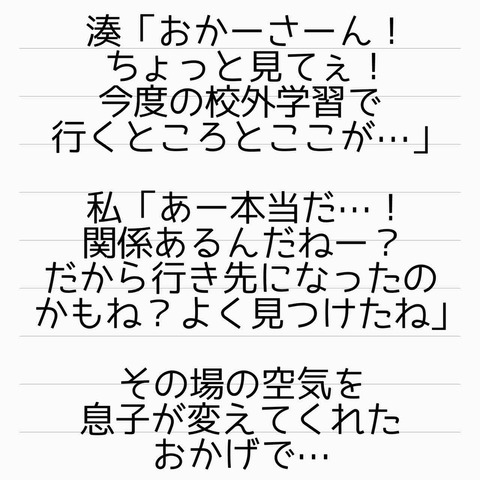 湊「おかーさーん！
ちょっと見てぇ！
今度の校外学習で
行くところとここが…」
私「あー本当だ…！
関係あるんだねー？
だから行き先になったの
かもね？よく見つけたね」
その場の空気を
息子が変えてくれた
おかげで…